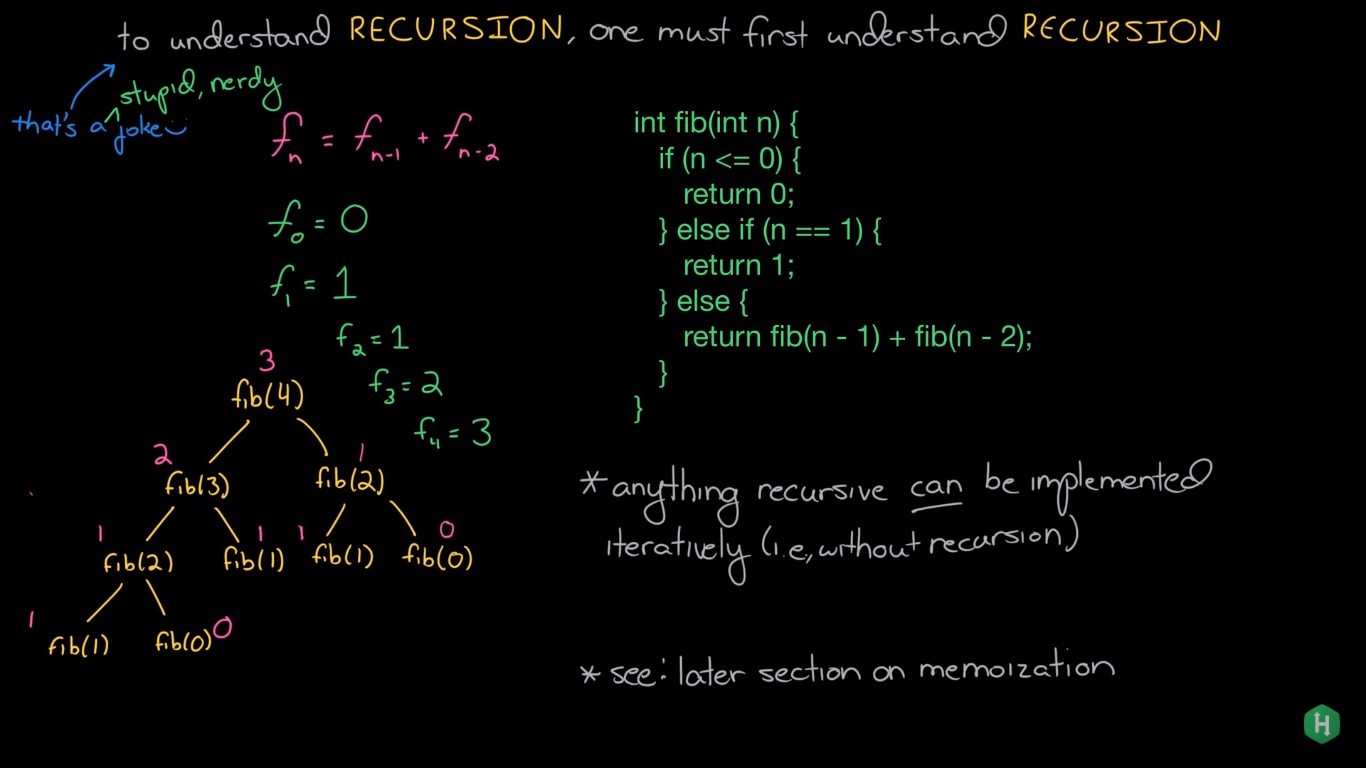 to understand RECURSION, one must first understand RECURSION
stupid, nerdy
that's a joke
fn = fn-1 + fn-2
f0 = 0
f1 = 1
f2 = 1
f3 = 2
f4 = 3
3
fib(4)
2 1
fib(3) fib(2)
1 1 1 0
fib(2) fib(1) fib(1) fib(0)
1 0
fib(1) fib(0)
int fib(int n) {
if (n <= 0) {
return 0;
} else if (n == 1) {
return 1;
} else {
return fib(n - 1) + fib(n - 2);
}
}
* anything recursive can be implemented
iteratively (i.e., without recursion)
* see: later section on memoization
H